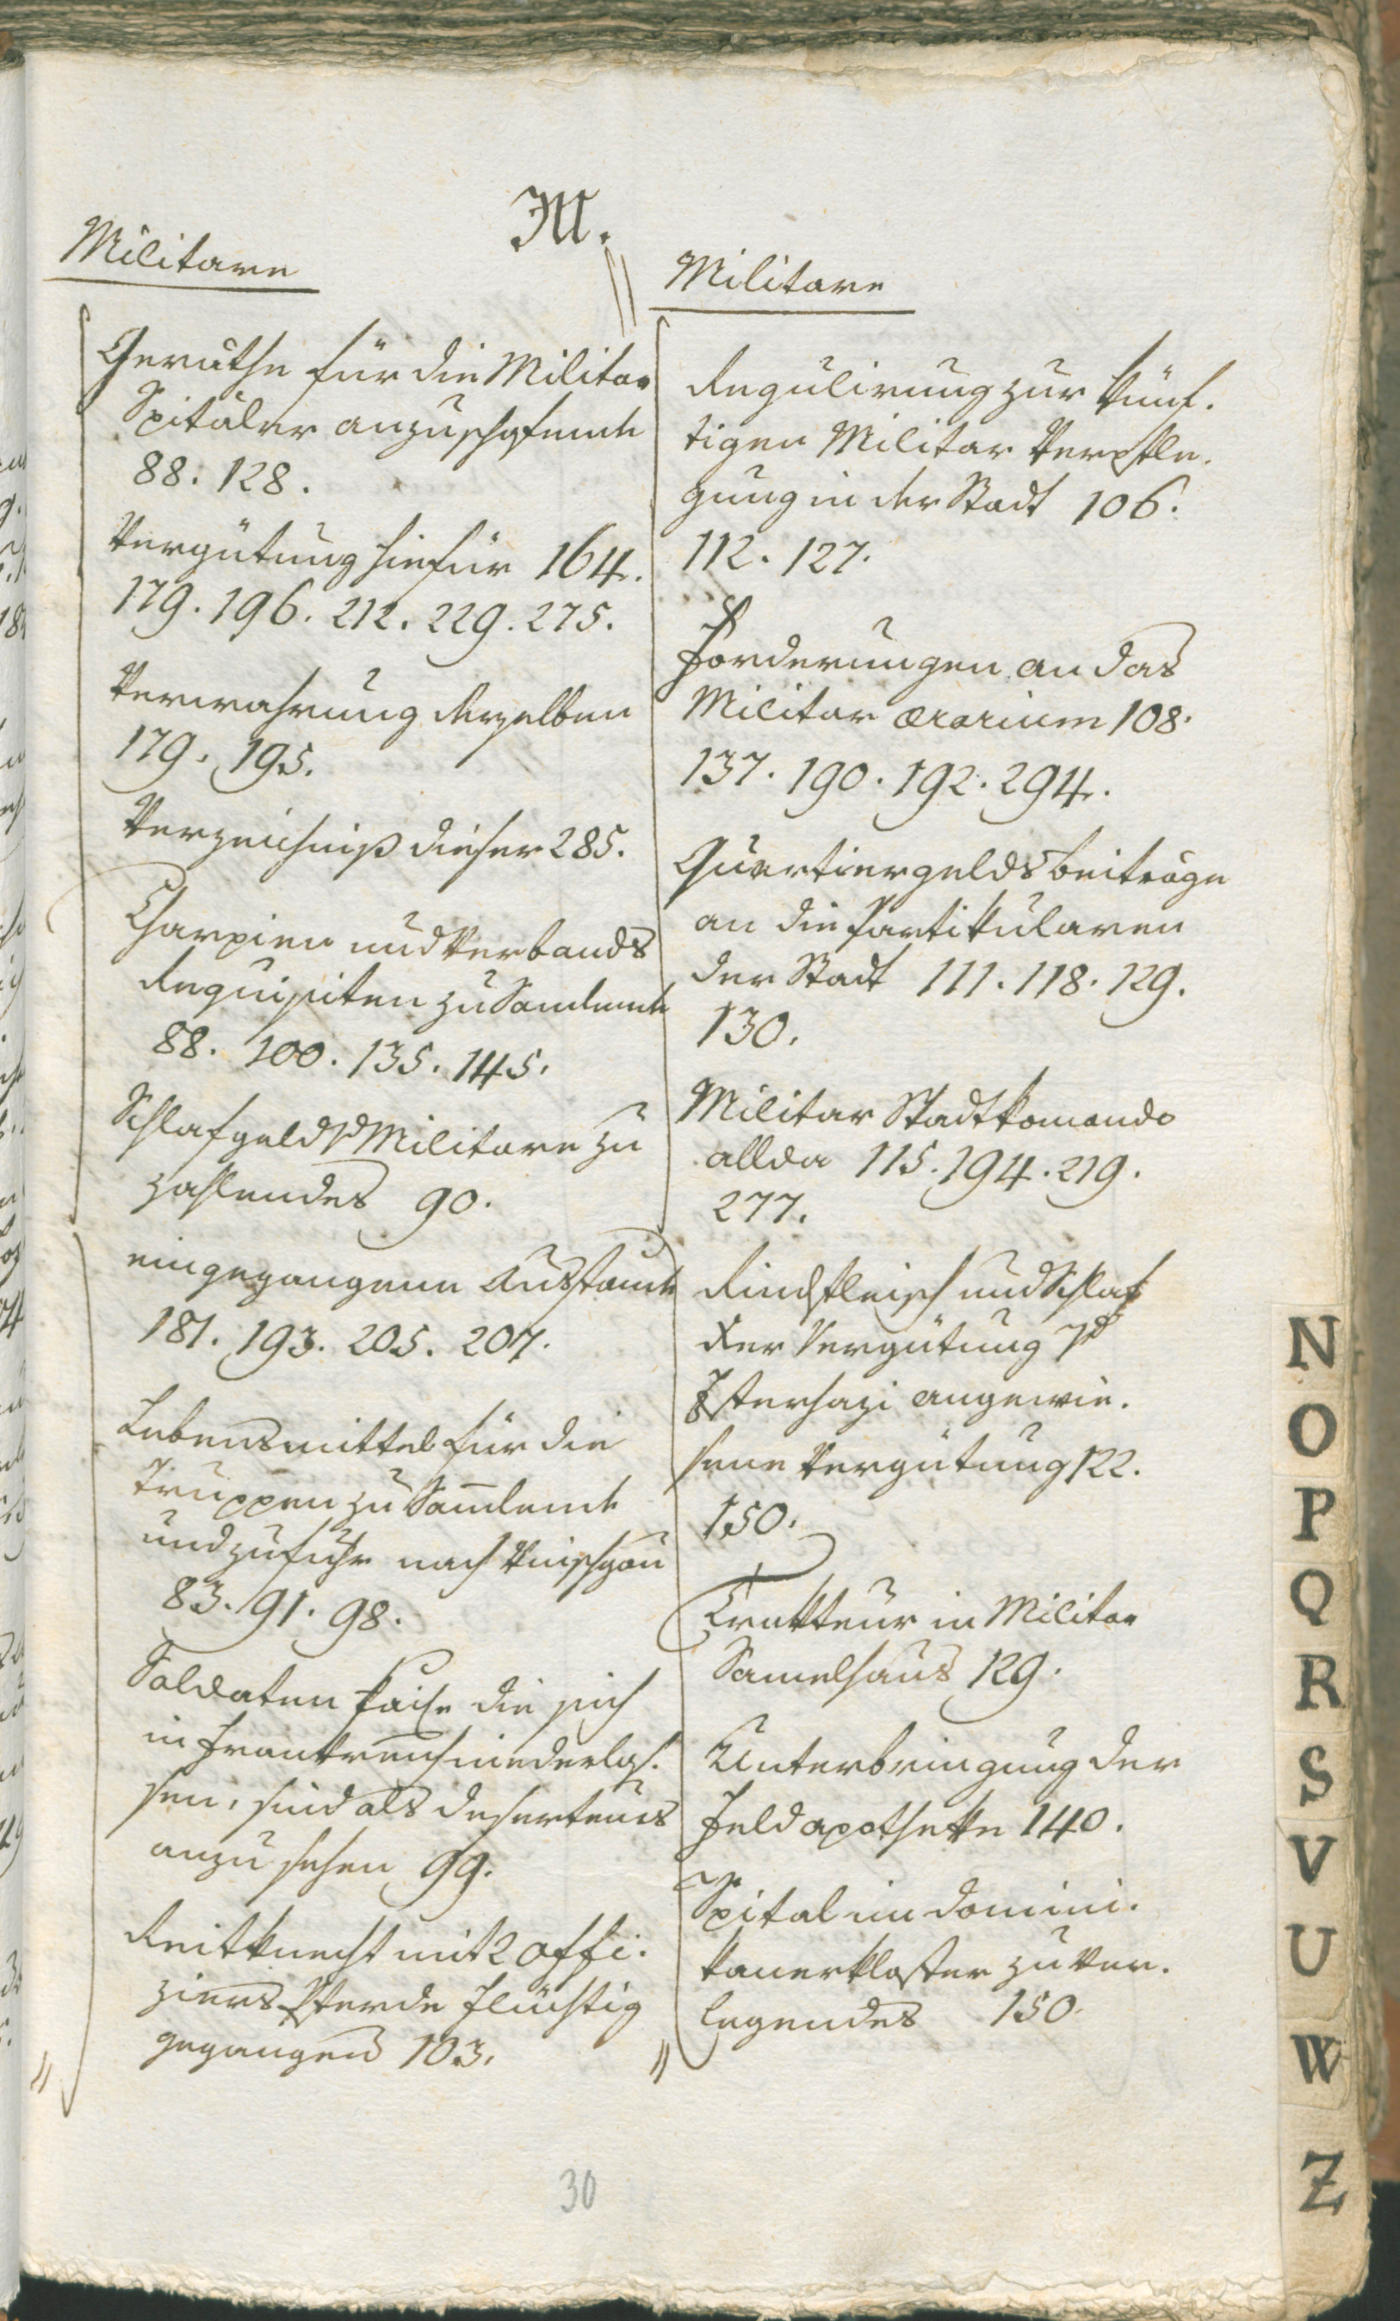 M.
Militare
Geräthe für die Militar
Spitäler anzuschafende
88. 128.
Vergütung hiefür 164.
179. 196. 212. 229. 275.
Verwahrung derselben
179. 195.
Verzeichniß dieser 285.
Charpien und Verbands
Requisiten zu Samlende
88. 100. 135. 145.
Schlafgeld Militare zu
zahlendes 90.
eingegangene Ausstände
181. 193. 205. 207.
Lebensmittel für die
Truppen zu Sam̄lende
und zufuhr nach Vinschgau
83. 91. 98.
Soldaten die sich
in Frankreich niederlas.
sen, sind als Deserteurs
anzusehen 99.
Reitknecht mit 2 offi.
ziers Pferde flüchtig
gegangen 103.
Militare
Regulirung zur künf.
tigen Militar Verpfle.
gung in der Stadt 106.
112. 127.
Forderungen an das
Militar ærarium 108.
137. 190. 192. 294.
Quartiergelds beiträge
an die Partikularen
der Stadt 111. 118. 129.
130.
Militar Stadtkomando
allda 115. 194. 219.
277.
Rindfleisch und Schlaf
der Vergütung
Esterhazi angewie.
sene Vergütung 122.
150.
Tratteur in Militar
Samelhaus 129.
Unterbringung der
Feldapotheke 140.
Spital im Domini.
kanerkloster zu ver.
legendes 150.
30
N
O
P
Q
R
S
V
U
W
Z